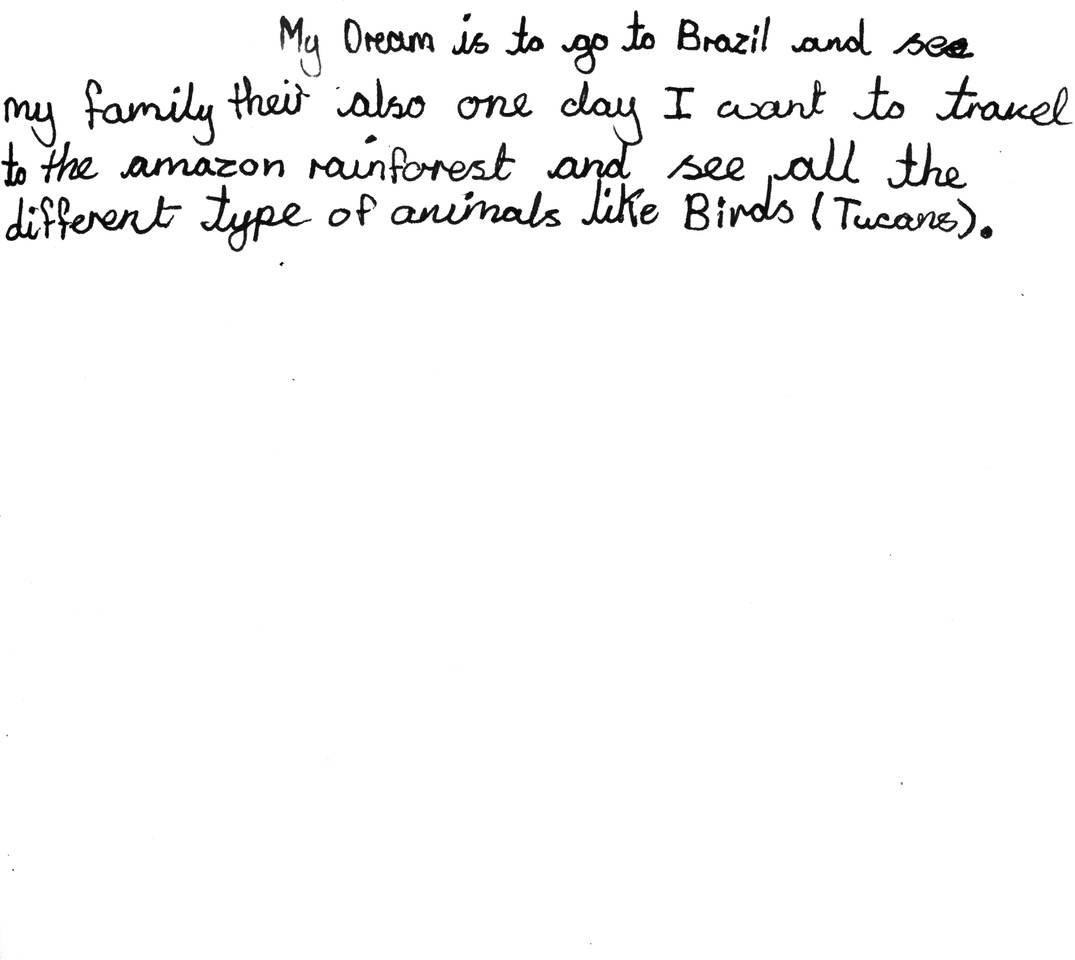 My Dream is to go to Brazil and see
my family their also one day I want to travel
to the amazon rainforest and see all the
different type of animals like Birds (Tucans).